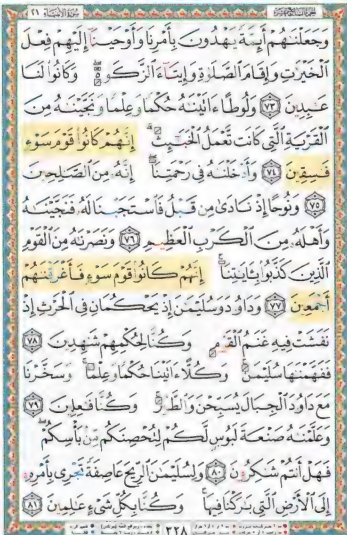 سورة الأنبياء ٢١
وَجَعَلْنَٰهُمْ أَئِمَّةً يَهْدُونَ بِأَمْرِنَا وَأَوْحَيْنَآ إِلَيْهِمْ فِعْلَ
ٱلْخَيْرَٰتِ وَإِقَامَ ٱلصَّلَوٰةِ وَإِيتَآءَ ٱلزَّكَوٰةِ ۖ وَكَانُوا۟ لَنَا
عَٰبِدِينَ ﴿٧٣﴾ وَلُوطًا ءَاتَيْنَٰهُ حُكْمًا وَعِلْمًا وَنَجَّيْنَٰهُ مِنَ
ٱلْقَرْيَةِ ٱلَّتِى كَانَت تَّعْمَلُ ٱلْخَبَٰٓئِثَ ۗ إِنَّهُمْ كَانُوا۟ قَوْمَ سَوْءٍ
فَٰسِقِينَ ﴿٧٤﴾ وَأَدْخَلْنَٰهُ فِى رَحْمَتِنَآ ۖ إِنَّهُۥ مِنَ ٱلصَّٰلِحِينَ
﴿٧٥﴾ وَنُوحًا إِذْ نَادَىٰ مِن قَبْلُ فَٱسْتَجَبْنَا لَهُۥ فَنَجَّيْنَٰهُ
وَأَهْلَهُۥ مِنَ ٱلْكَرْبِ ٱلْعَظِيمِ ﴿٧٦﴾ وَنَصَرْنَٰهُ مِنَ ٱلْقَوْمِ
ٱلَّذِينَ كَذَّبُوا۟ بِـَٔايَٰتِنَآ ۚ إِنَّهُمْ كَانُوا۟ قَوْمَ سَوْءٍ فَأَغْرَقْنَٰهُمْ
أَجْمَعِينَ ﴿٧٧﴾ وَدَاوُۥدَ وَسُلَيْمَٰنَ إِذْ يَحْكُمَانِ فِى ٱلْحَرْثِ إِذْ
نَفَشَتْ فِيهِ غَنَمُ ٱلْقَوْمِ وَكُنَّا لِحُكْمِهِمْ شَٰهِدِينَ ﴿٧٨﴾
فَفَهَّمْنَٰهَا سُلَيْمَٰنَ ۚ وَكُلًّا ءَاتَيْنَا حُكْمًا وَعِلْمًا ۚ وَسَخَّرْنَا
مَعَ دَاوُۥدَ ٱلْجِبَالَ يُسَبِّحْنَ وَٱلطَّيْرَ ۚ وَكُنَّا فَٰعِلِينَ ﴿٧٩﴾
وَعَلَّمْنَٰهُ صَنْعَةَ لَبُوسٍ لَّكُمْ لِتُحْصِنَكُم مِّنۢ بَأْسِكُمْ ۖ
فَهَلْ أَنتُمْ شَٰكِرُونَ ﴿٨٠﴾ وَلِسُلَيْمَٰنَ ٱلرِّيحَ عَاصِفَةً تَجْرِى بِأَمْرِهِۦٓ
إِلَى ٱلْأَرْضِ ٱلَّتِى بَٰرَكْنَا فِيهَا ۚ وَكُنَّا بِكُلِّ شَىْءٍ عَٰلِمِينَ ﴿٨١﴾
٣٢٨